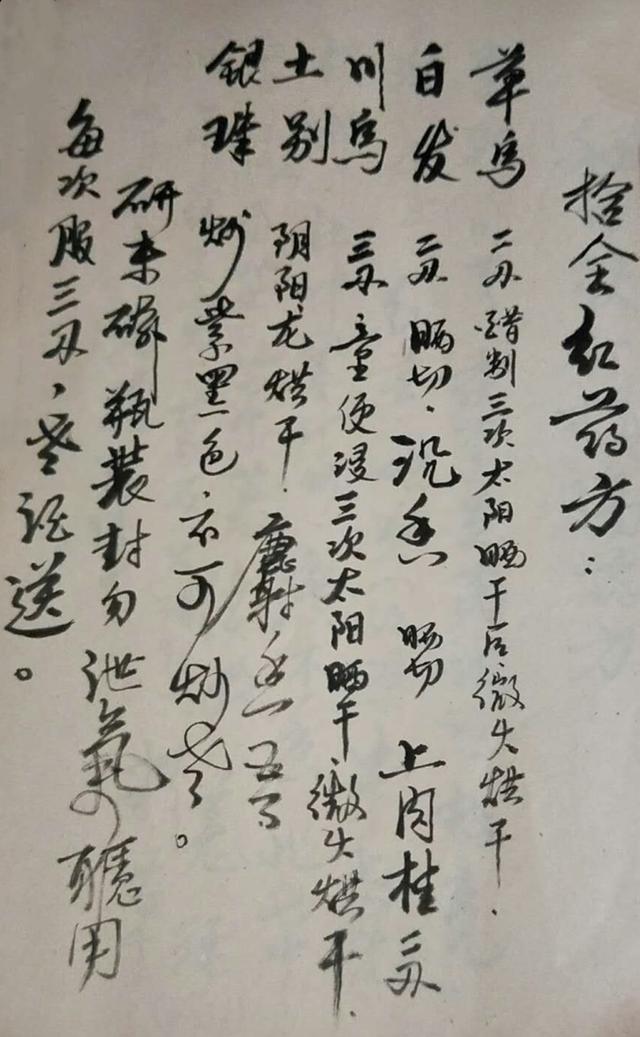 拾全红药方:
草乌 二刄 醋制三次太阳晒干后微火烘干.
白发 二刄 晒切.沉香 晒切 上肉桂 二刄
川乌 三刄 童便浸三次太阳晒干.微火烘干.
土别 阴阳龙烘干.麝射香 五
银珠 炒紫黑色.不可炒老。
研末磷瓶装封勿泄氣可聽用
每次服三刄、老酒送。